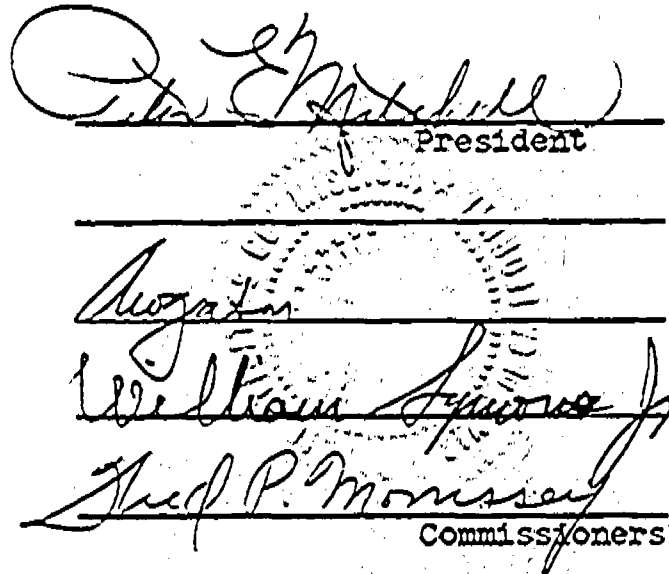 Peter E Mitchell
President
William Symons Jr
Fred P. Morrissey
Commissioners